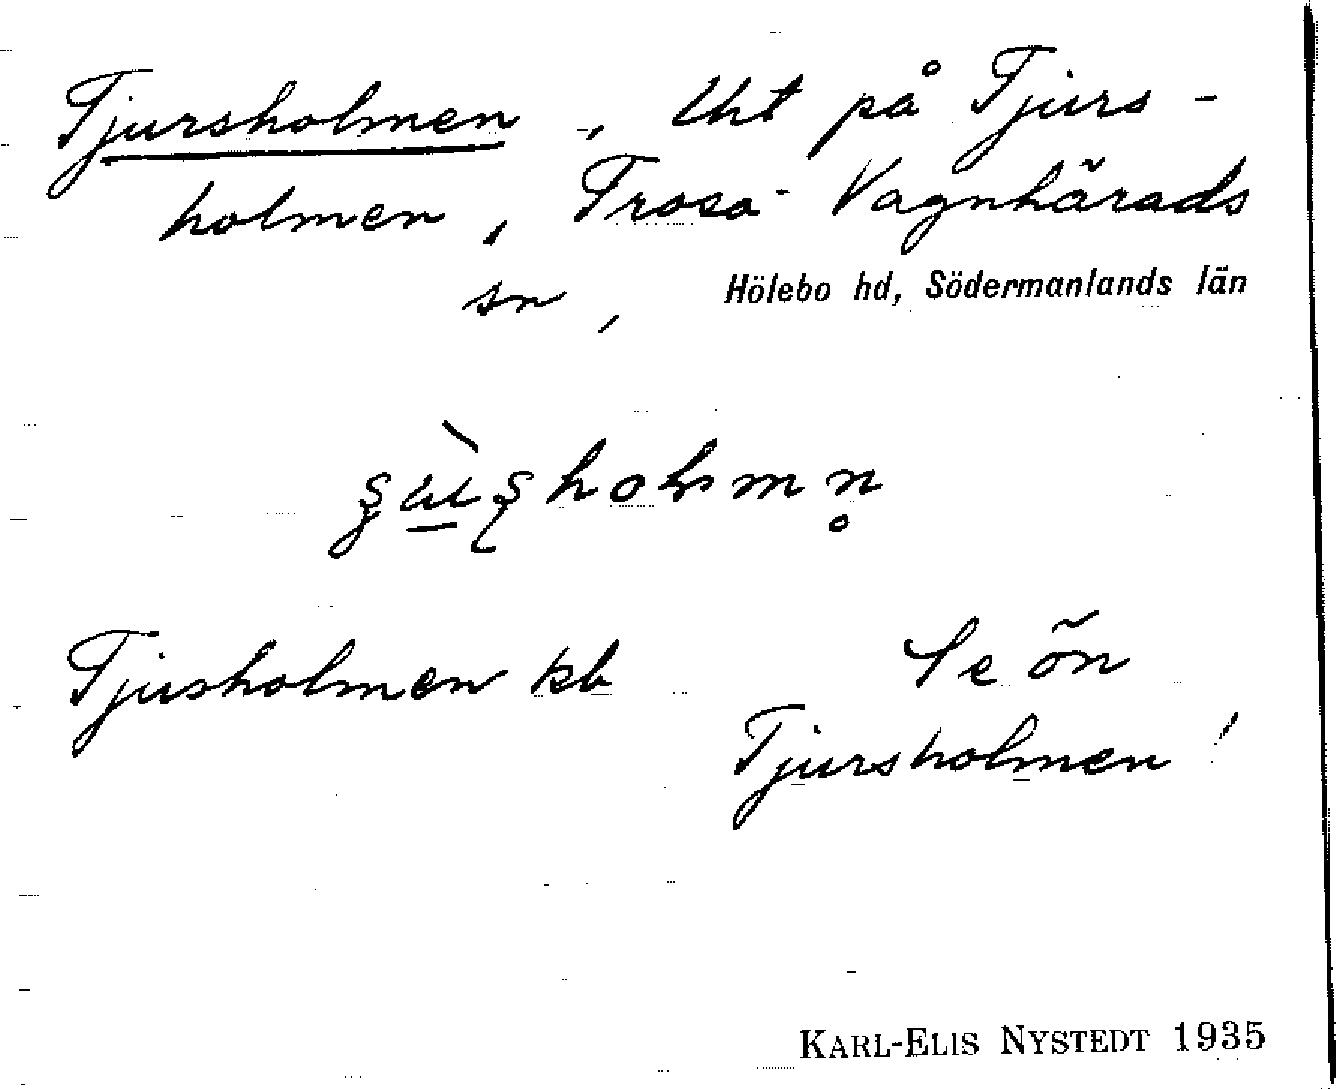 Tjursholmen, Uht på Tjurs-
holmen, Trosa-Vagnhärads
sn, Hölebo hd, Södermanlands län
Tjusholmen kb
Se ön
Tjursholmen!
KARL-ELIS NYSTEDT 1935